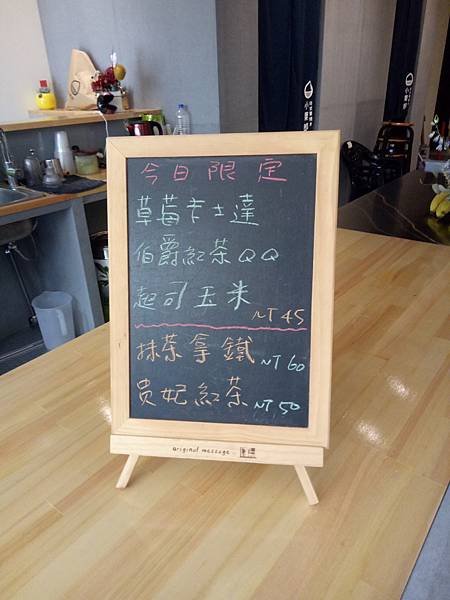 今日限定
草莓卡士達
伯爵紅茶QQ
起司玉米
NT45
抹茶拿鐵 NT60
贵妃紅茶 NT50
original message